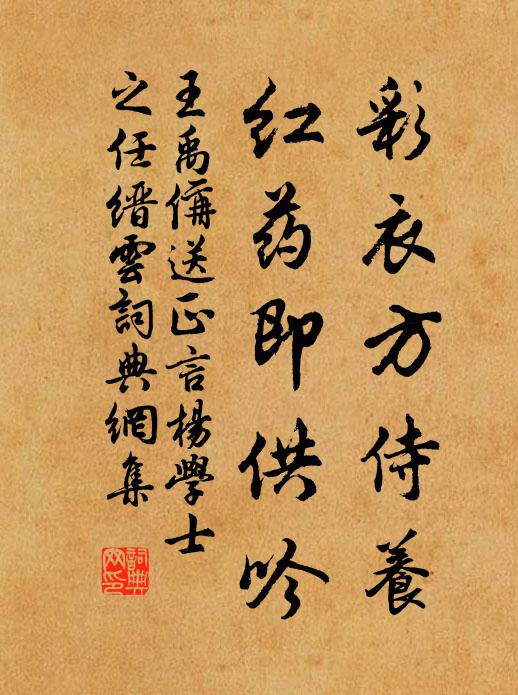 彩衣方侍養
红药即供吟
王禹偁送正言楊學士
之任縉雲詞典網集
詞典網印